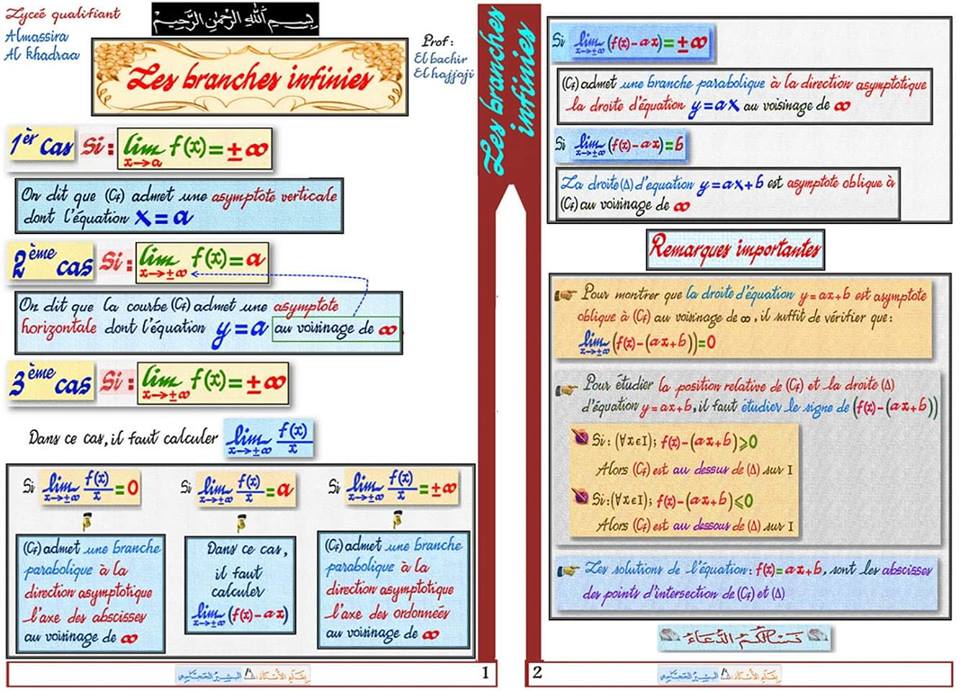 Lycée qualifiant
Almassira
Al khadraa
بسم الله الرحمن الرحيم
Les branches infinies
Prof :
El bachir
El hajjaji
1èr cas Si : lim x→a f(x) = ±∞
On dit que (Cf) admet une asymptote verticale
dont l'équation x = a
2ème cas Si : lim x→±∞ f(x) = a
On dit que la courbe (Cf) admet une asymptote
horizontale dont l'équation y = a au voisinage de ∞
3ème cas Si : lim x→±∞ f(x) = ±∞
Dans ce cas, il faut calculer lim x→±∞ f(x)/x
Si lim x→±∞ f(x)/x = 0
(Cf) admet une branche
parabolique à la
direction asymptotique
l'axe des abscisses
au voisinage de ∞
Si lim x→±∞ f(x)/x = a
Dans ce cas,
il faut
calculer
lim x→±∞ (f(x) - ax)
Si lim x→±∞ f(x)/x = ±∞
(Cf) admet une branche
parabolique à la
direction asymptotique
l'axe des ordonnées
au voisinage de ∞
1
Les branches
infinies
Si lim x→±∞ (f(x) - ax) = ±∞
(Cf) admet une branche parabolique à la direction asymptotique
la droite d'équation y = ax au voisinage de ∞
Si lim x→±∞ (f(x) - ax) = b
La droite (Δ) d'equation y = ax + b est asymptote oblique à
(Cf) au voisinage de ∞
Remarques importantes
Pour montrer que la droite d'équation y = ax + b est asymptote
oblique à (Cf) au voisinage de ∞, il suffit de vérifier que :
lim x→±∞ (f(x) - (ax + b)) = 0
Pour étudier la position relative de (Cf) et la droite (Δ)
d'équation y = ax + b, il faut étudier le signe de (f(x) - (ax + b))
Si : (∀x∈I) ; f(x) - (ax + b) ⩾ 0
Alors (Cf) est au dessus de (Δ) sur I
Si : (∀x∈I) ; f(x) - (ax + b) ⩽ 0
Alors (Cf) est au dessous de (Δ) sur I
Les solutions de l'équation : f(x) = ax + b, sont les abscisses
des points d'intersection de (Cf) et (Δ)
نسألكم الدعاء
2